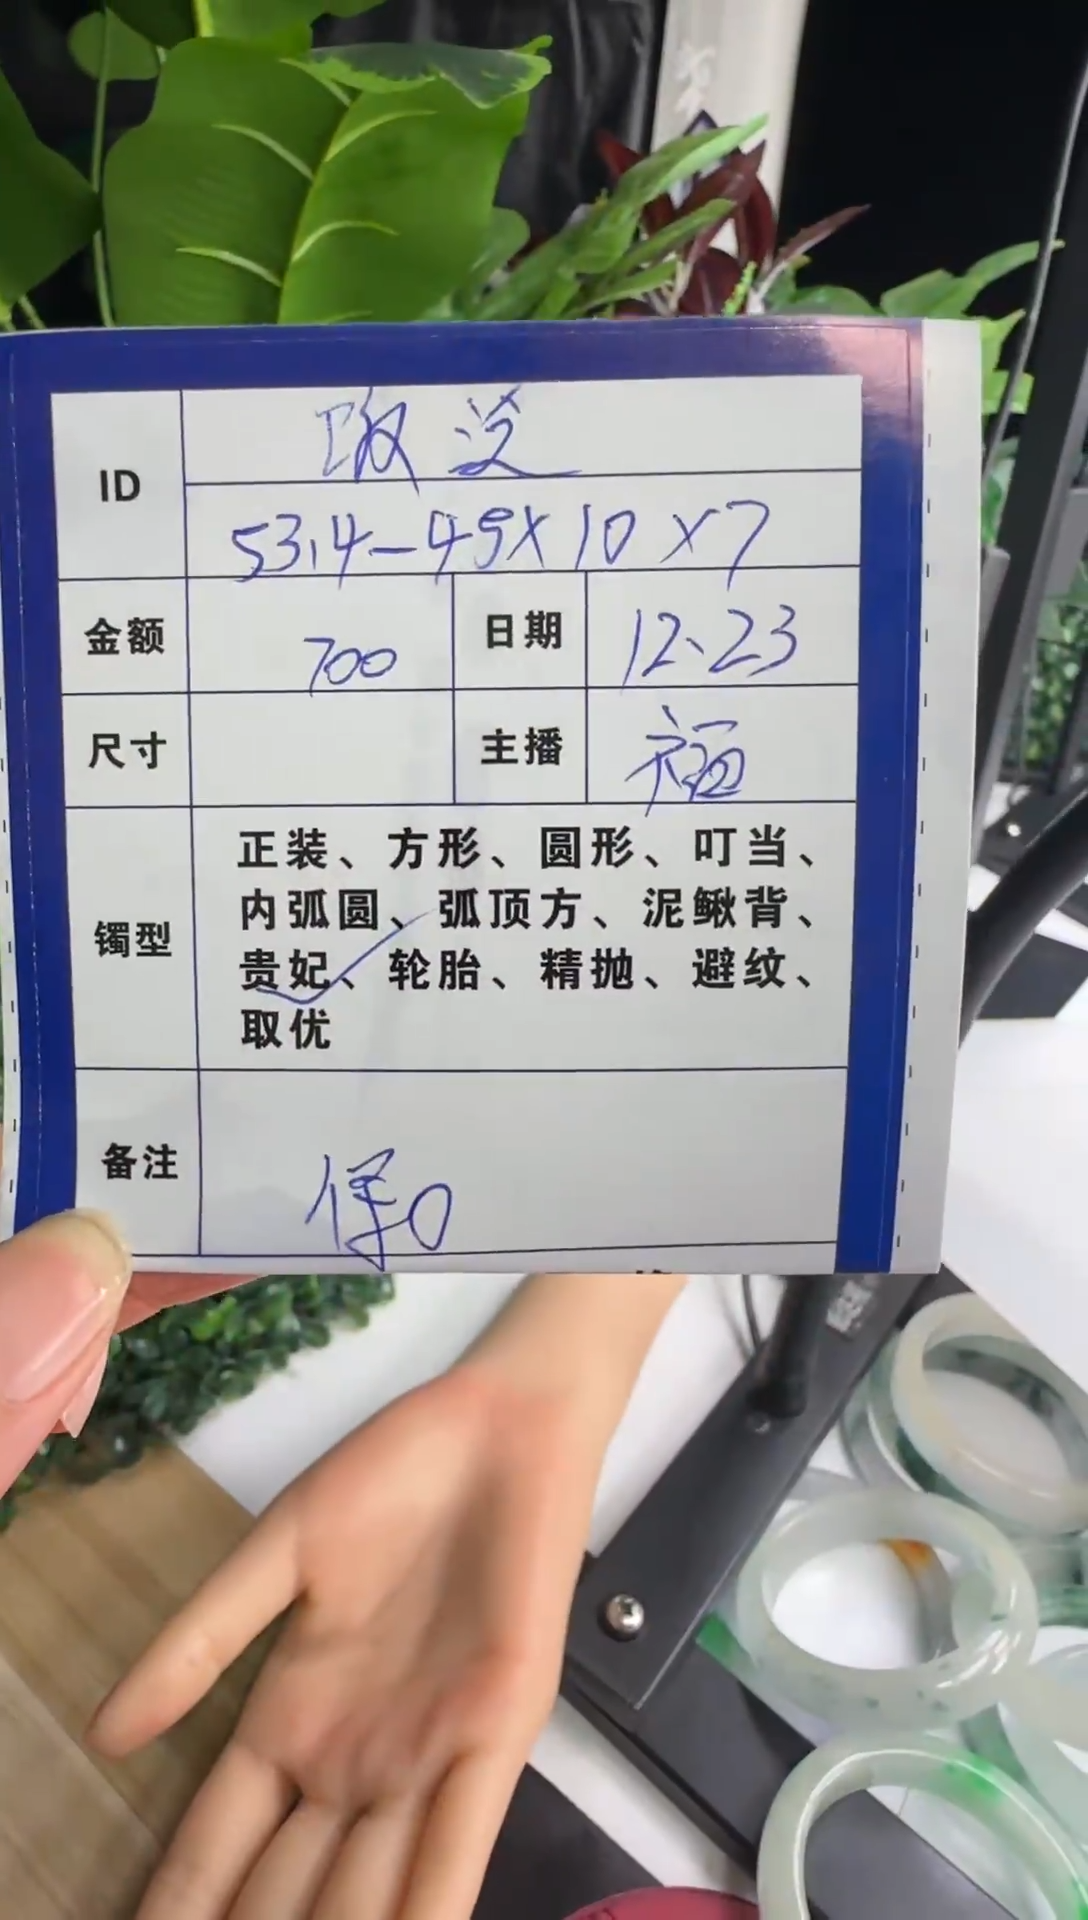 ID
53.4-49X10X7
金额 700 日期 12、23
尺寸 主播 福
镯型 正装、方形、圆形、叮当、
内弧圆、弧顶方、泥鳅背、
贵妃、轮胎、精抛、避纹、
取优
备注